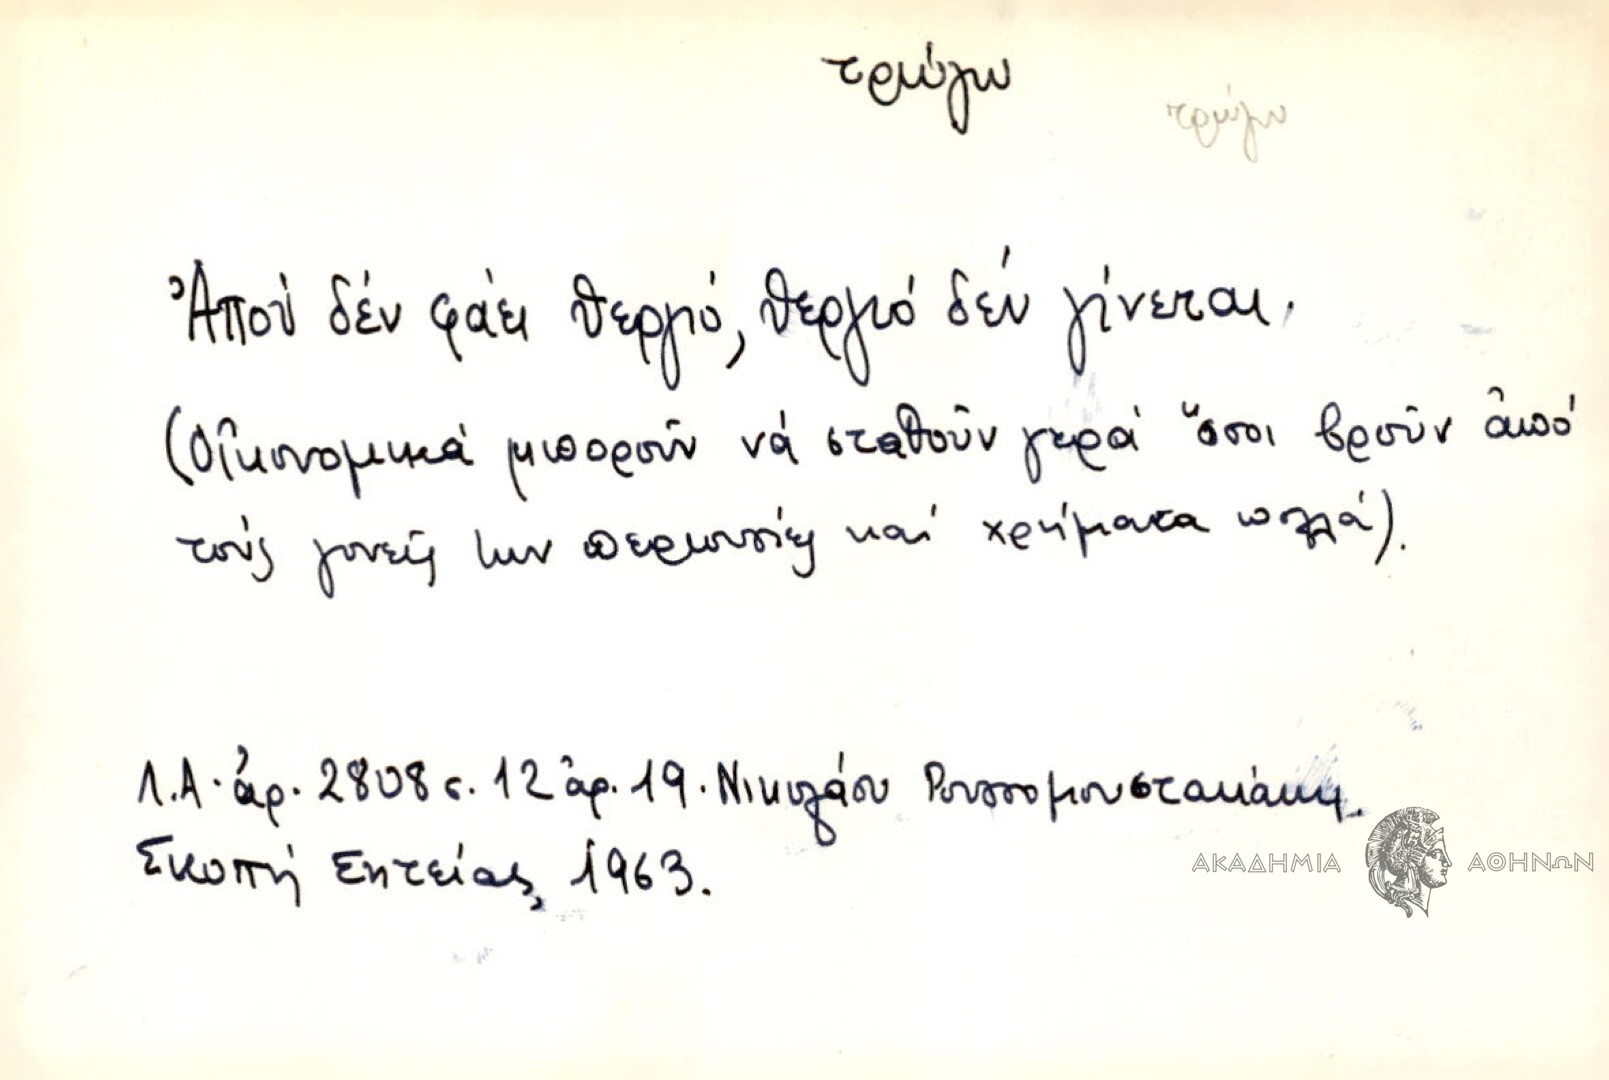 τρώγω
τρώγω
Ἀπού δέν φάει θεργιό, θεργιό δέν γίνεται.
(Οἰκονομικά μποροῦν νά σταθοῦν γερά ὅσοι βροῦν ἀπό
τούς γονεῖς των περιουσίες καί χρήματα πολλά).
Λ.Α. ἀρ. 2808 σ. 12 ἀρ. 19. Νικολάου
Σκοπή Σητείας, 1963.
ΑΚΑΔΗΜΙΑ ΑΘΗΝΩΝ